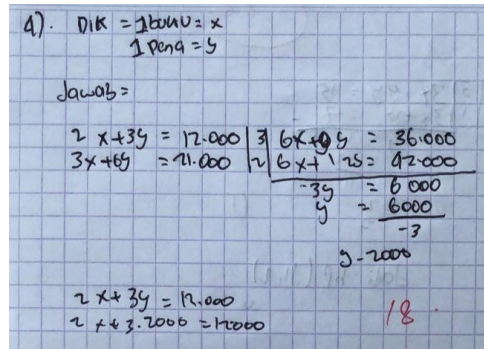 4). Dik = 1 buku = x
1 pena = y
Jawab =
2x+3y = 12.000 | 3 | 6x+9y = 36.000
3x+6y = 21.000 | 2 | 6x+12y = 42.000
-3y = 6000
y = 6000
-3
y - 2000
2x+3y = 12.000
2x+3.2000 = 12000
18